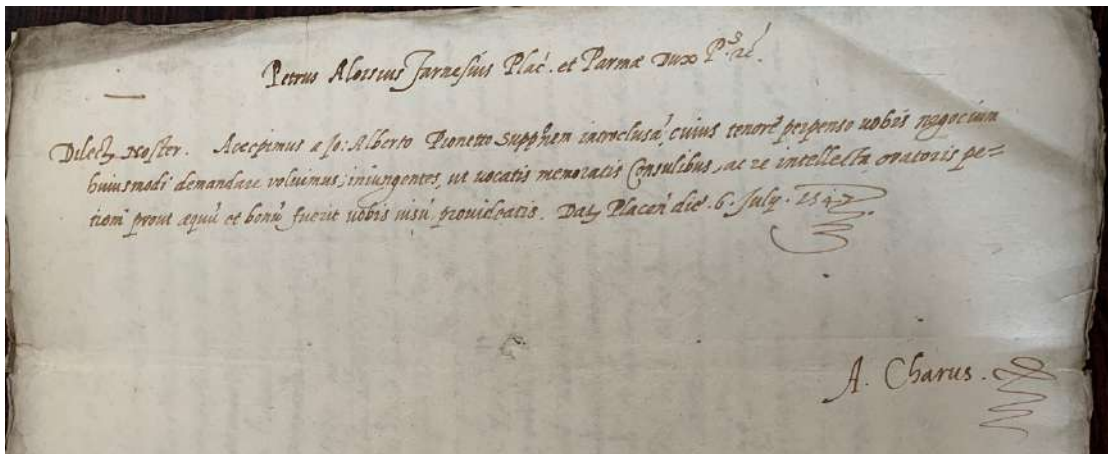 Petrus Aloisius Farnesius Plac. et Parmæ Dux P.s
Dilect. Noster. Accepimus a Jo: Alberto Pionetto supp.hem introclusā, cuius tenorē perpenso uobis negocium
huiusmodi demandare voluimus, iniungentes, ut uocatis memoratis Consulibus, ac re intellecta, oratoris pe=
tioni prout æquū et bonū fuerit uobis uisū prouideatis. Dat. Placen. die .6. July. 1547
A. Charus.